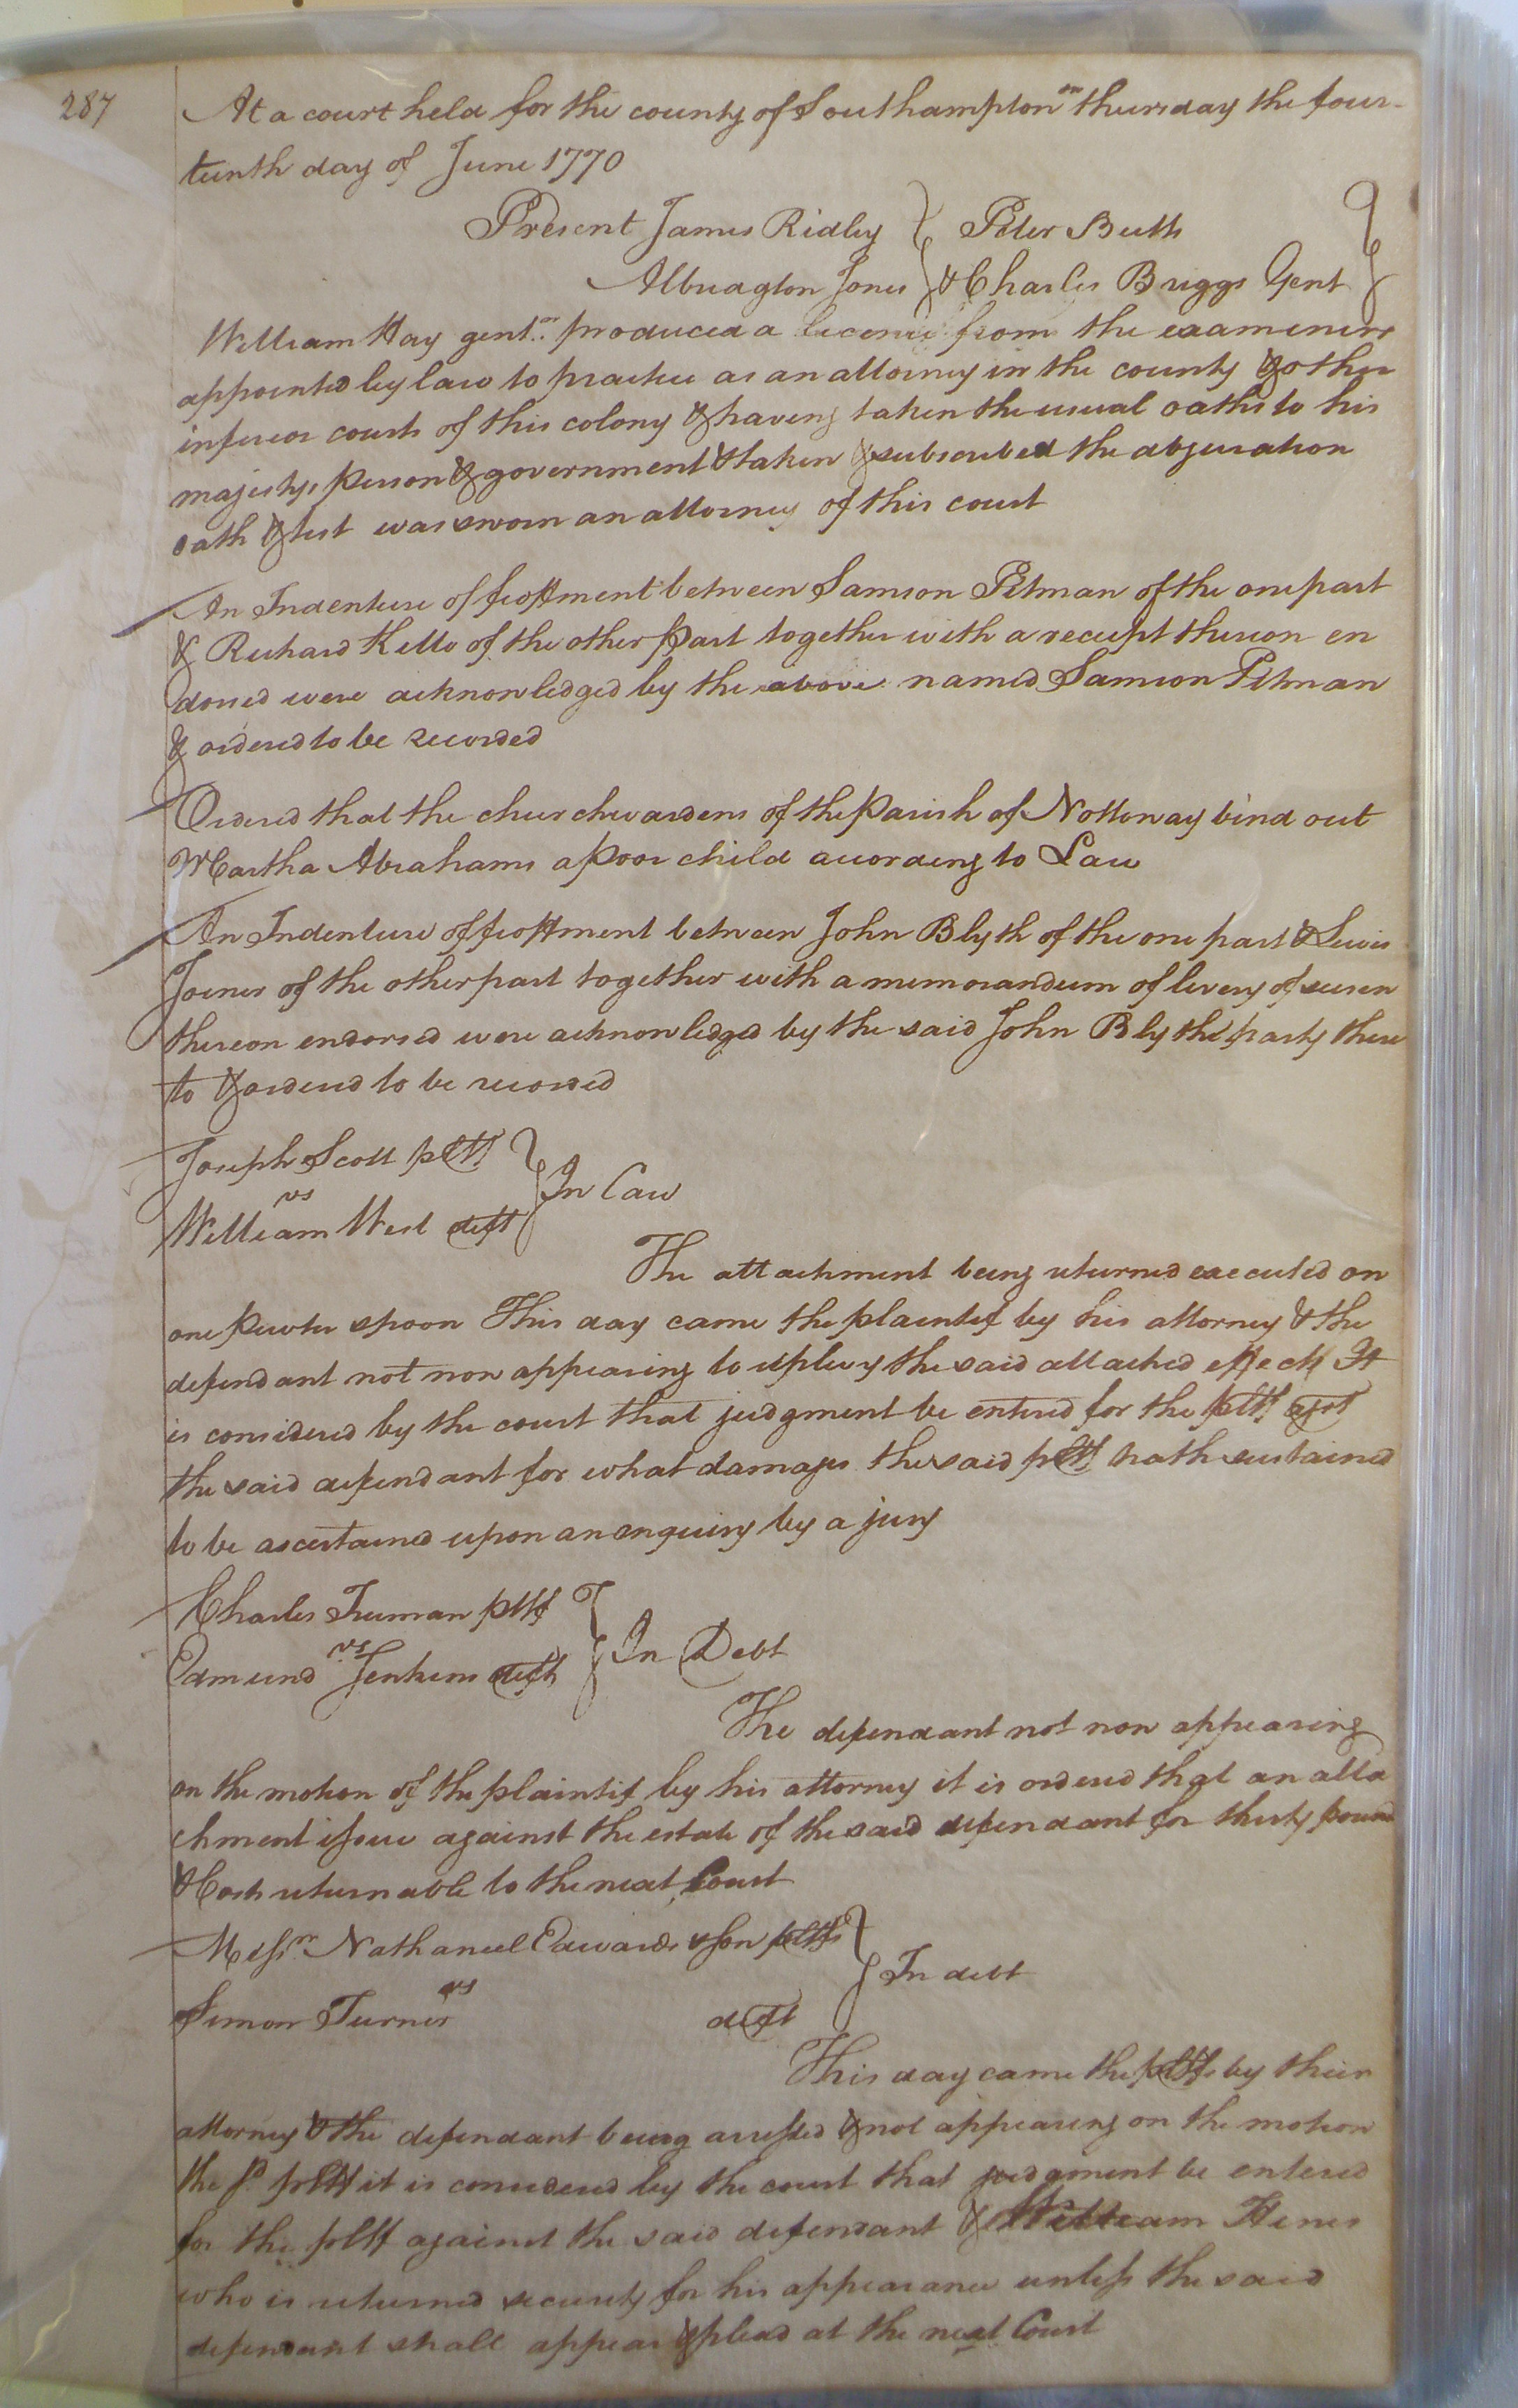 287
At a court held for the county of Southampton on thursday the four-
teenth day of June 1770
Present James Ridley } Peter Butts }
Albridgton Jones } & Charles Briggs Gent }
William Hay gent.n produced a licence from the examiners
appointed by law to practice as an attorney in the county & other
inferior courts of this colony & having taken the usual oaths to his
majestys person & government & taken & subscribed the abjuration
oath & test was sworn an attorney of this court
An Indenture of feoffment between Samson Pitman of the one part
& Richard Kello of the other part together with a receipt thereon en
dorsed were acknowledged by the above named Samson Pitman
& ordered to be recorded
Ordered that the churchwardens of the Parish of Nottoway bind out
Martha Abrahams a poor child according to Law
An Indenture of feoffment between John Blyth of the one part & Lewis
Joiner of the other part together with a memorandum of livery of seisen
thereon endorsed were acknowledged by the said John Blyth party there
to & ordered to be recorded
Joseph Scott pltf }
vs } In Caw
William West deft }
The attachment being returned executed on
one pewter spoon This day came the plaintif by his attorney & the
defendant not now appearing to replevy the said attached effects It
is considered by the court that judgment be entered for the pltf agst
the said defendant for what damages the said pltf hath sustained
to be ascertained upon an enquiry by a jury
Charles Truman pltf }
vs } In Debt
Edmund Jenkins deft }
The defendant not now appearing
on the motion of the plaintif by his attorney it is ordered that an atta
chment issue against the estate of the said defendant for thirty pounds
& Costs returnable to the next Court
Messrs Nathaniel Edwards & son pltfs }
vs } In debt
Simon Turner deft
This day came the pltfs by their
attorney & the defendant being arrested & not appearing on the motion
the sd pltff it is considered by the court that judgment be entered
for the pltff against the said defendant & William Hines
who is returned security for his appearance unless the said
defendant shall appear & plead at the next Court